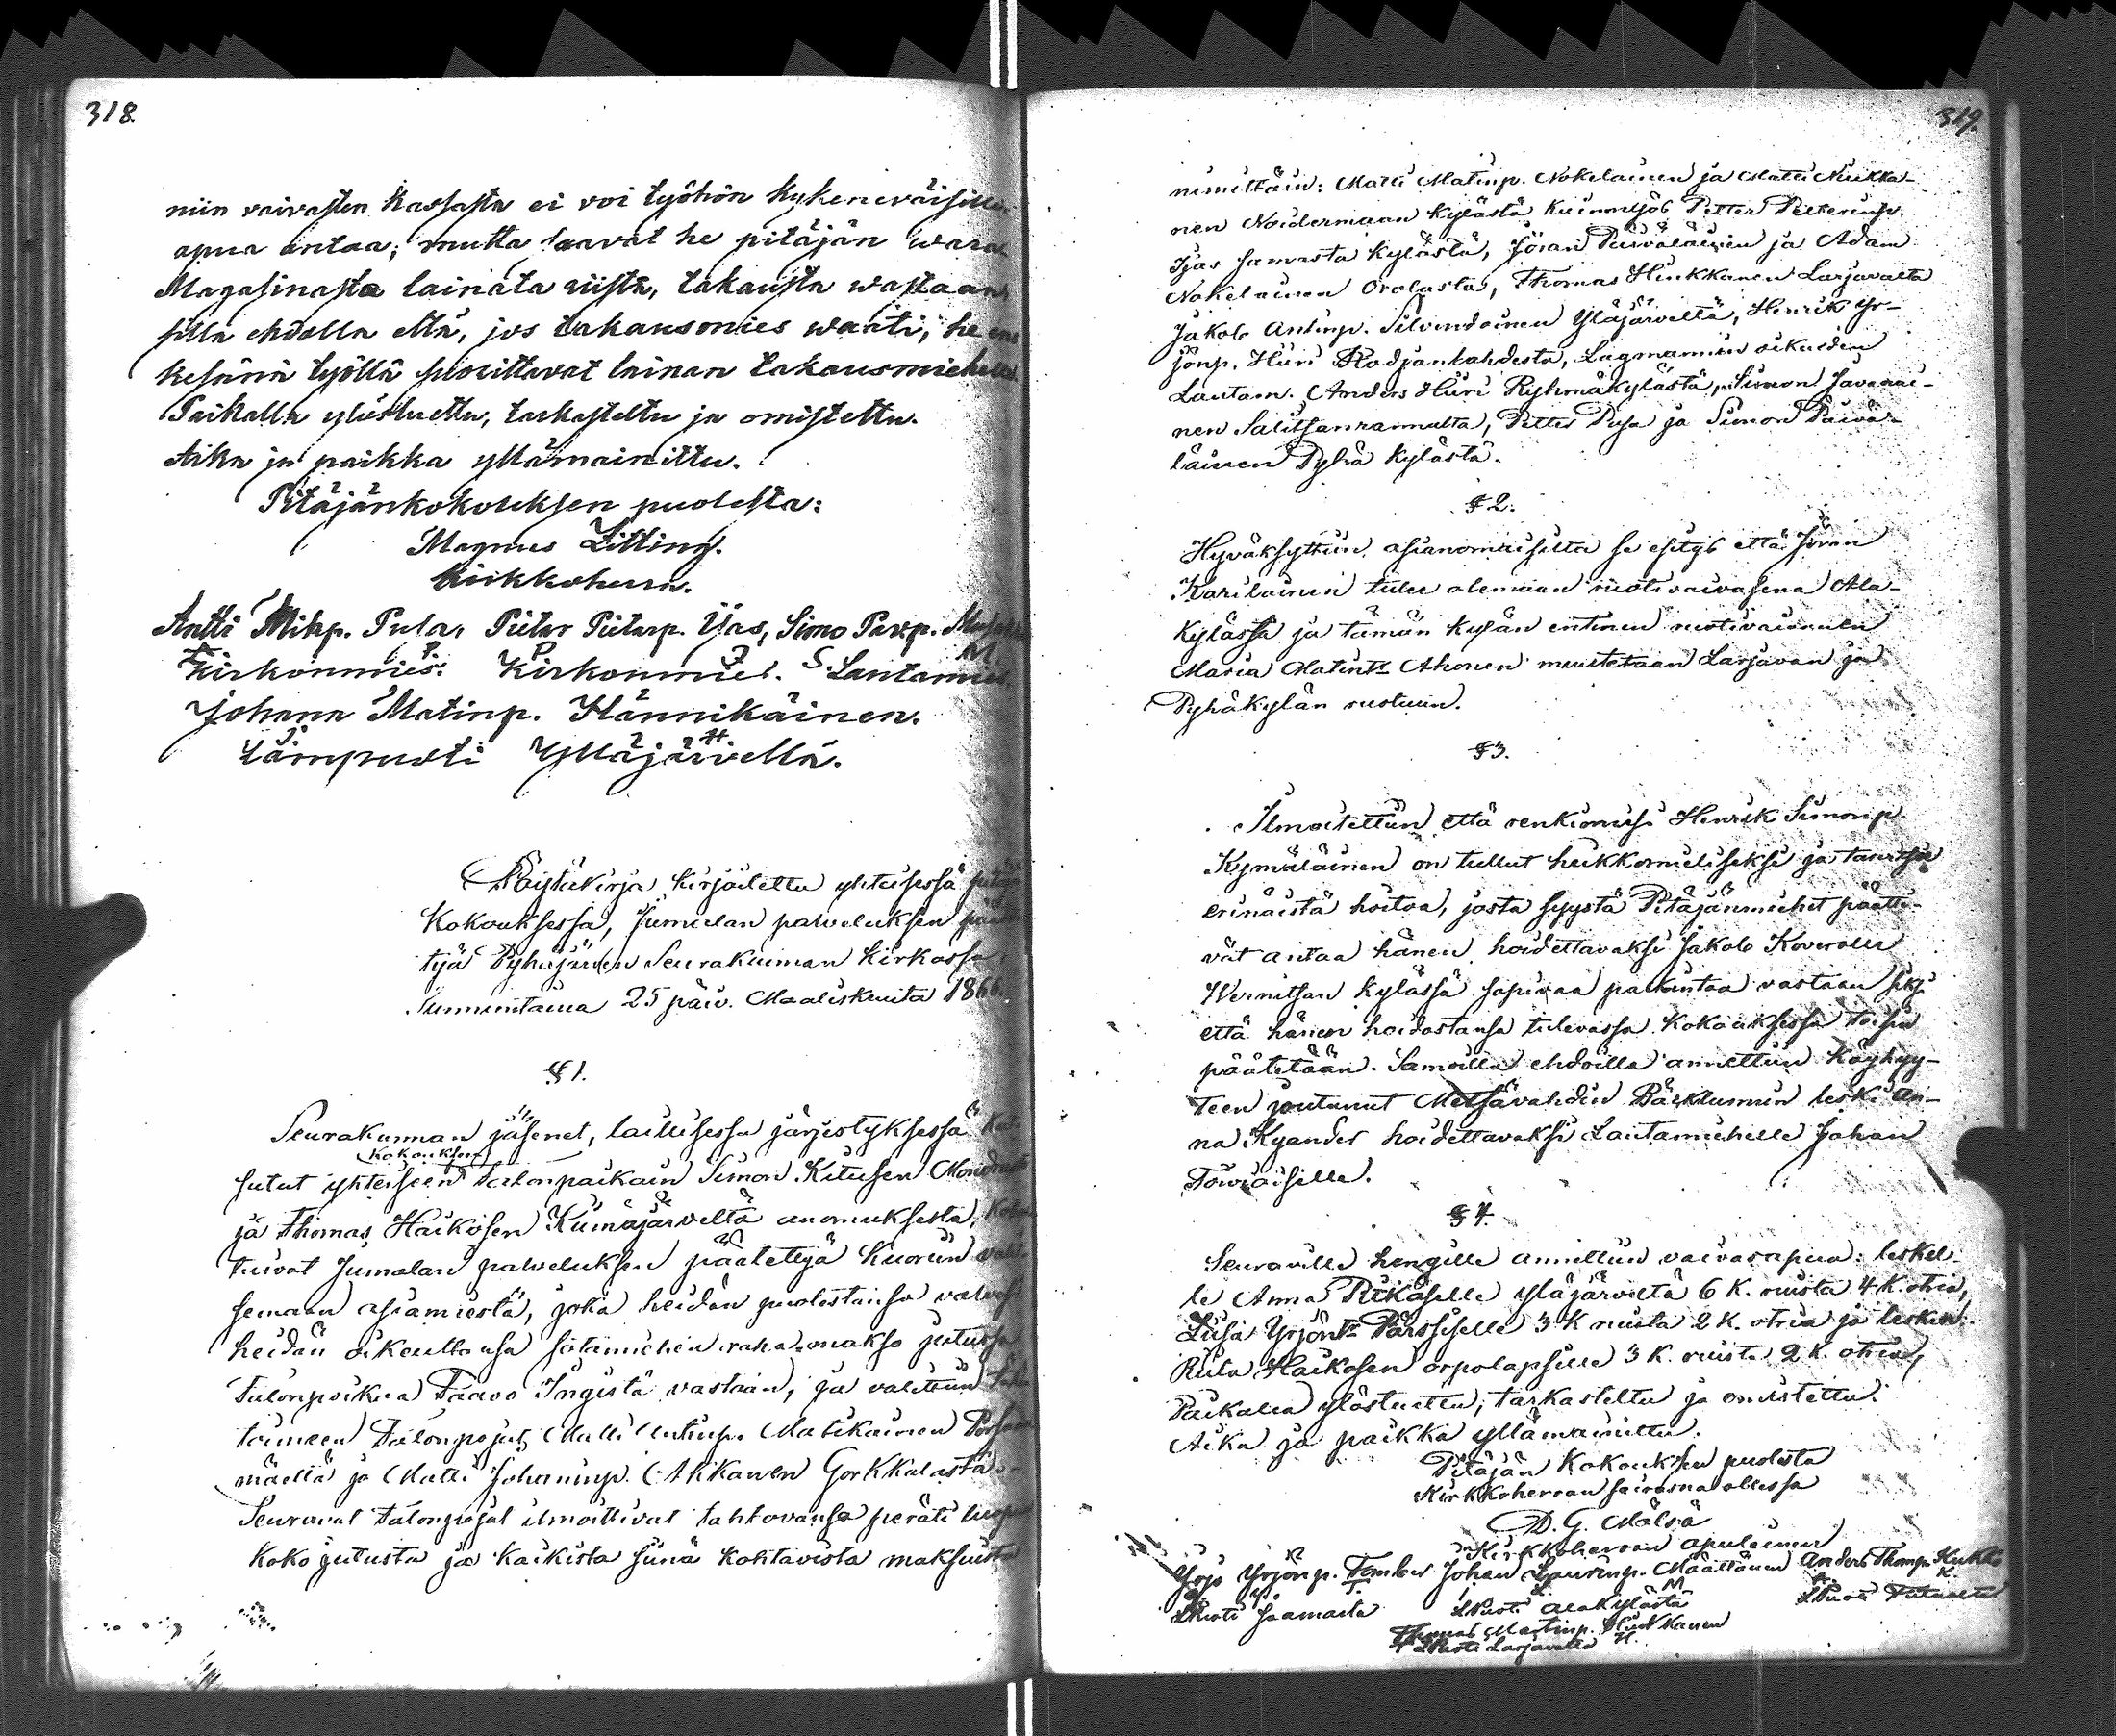 318.
niin vaivasten kassasta ei voi työhön kykeneväisille
apua antaa; mutta saavat he pitäjän wara
Magasinasta lainata viista, takausta wastaan
sillä ehdolla että, jos takausmies waatii, he
kesänä työllä suorittavat lainan takausmiehelle.
Paikalla ylösluettu, tarkasteltu ja omistettu.
Aika ja paikka yllämainittu.
Pitäjänkokouksen puolesta:
Magnus Litting.
Kirkkoherra.
Antti Mikp. Pula, Pietar Pietarp. Ijas, Simo Pavp.
Kirkonmies. Kirkonmies. Lautamies
Johana Matinp. Hännikäinen.
Lämpuoti Ylläjärvellä.
Pöytäkirja kirjoitettu yhteisessä
Kokouksessa, Jumalan palveluksen
tyä Pyhäjärven Seurakunnan Kirkossa
Sunnuntaina 25 päiv. Maaliskuuta 1866.
§ 1.
Seurakunnan jäsenet, laillisessa järjestyksessä
kokouksen
sutut yhteiseen talonpaikain Simon Kitusen
ja Thomas Haikosen Kunnajärveltä anomuksesta,
tuivat Jumalan palveluksen päätettyä Kuoriin
semaan asiamiestä, joka heidän puolestansa
heidän oikeuttansa sotamiehen raha-makso jutussa
Talonpoikaa Taavo Ingistä vastaan, ja valittiin
toimeen Talonpojat, Matti Antinp. Matikainen
mäeltä ja Matti Johaninp. Ahkanen Gorkkalasta.
Seuravat talonpojat ilmoittivat tahtovansa peräti
koko jutusta ja kaikista siinä kohtavista maksuista
319.
nimittäin: Matti Matinp. Nokelainen ja Matti Niukka-
nen Noidermaan kylästä kuin myös Petter Petterinp.
Ijas samasta kylästä, Jöran Päiväläinen ja Adam
Nokelainen Oralasta, Thomas Hinkkanen Larjavalta
Jakob Antinp. Silvendoinen Yläjärveltä, Henrik Yr-
jönp. Hiiri Rodjanlahdesta, Lagmannin oikeiden
Lautam. Anders Hiiri Ryhmäkylästä, Simon Savanai-
nen Salitsanrannalta, Petter Pusa ja Simon Päivä-
läinen Pyhä kylästä.
§ 2.
Hyväksyttiin asianomaisilta se esitys että Jöran
Karilainen tulee olemaan ruotivaivasena Ala-
kylässä ja tämän kylän entinen ruotivaivainen
Maria Matintr. Ahonen muutetaan Larjavan ja
Pyhäkylän ruotuun.
§ 3.
Ilmoitettiin että renkimies Henrik Simonp.
Kymäläinen on tullut heikkomieliseksi ja tarvitsee
erinäistä hoitoa, josta syystä Pitäjänmiehet päätti-
vät antaa hänen hoidettavaksi Jakob Koverolle
Wernitsan kylässä sopivaa palkintoa vastaan siksi
että hänen hoidostansa tulevassa kokouksessa toisin
päätetään. Samoilla ehdoilla annettiin köyhyy-
teen joutunut Metsävahdin Bäcklunnin leski An-
na Kyander hoidettavaksi Lautamiehelle Johan
Towiaiselle.
§ 4.
Seuraville hengille annettiin vaivasapua: leskel-
le Anna Pitkäselle Yläjärveltä 6 K. ruista 4 K. otria,
Liisa Yrjöntr. Pärssiselle 3 K ruista 2 K. otria ja lesken
Riita Haikosen orpolapsille 3 K. ruista 2 K. otria,
Paikalla ylösluettu, tarkasteltu ja omistettu.
Aika ja paikka yllämainittu.
Pitäjän Kokouksen puolesta
Kirkkoherran sairasna ollessa
D. G. Mälsä
Kirkkoherran apulainen
Yrjö Yrjönp. Tomber Johan Laurinp. Määttänen Anders Thomp. Kukko
L Puoti Jaamasta L Puoti Alakylästä L Puoti
Thomas Martinp. Hinkkanen
L Puoti Larjavalta